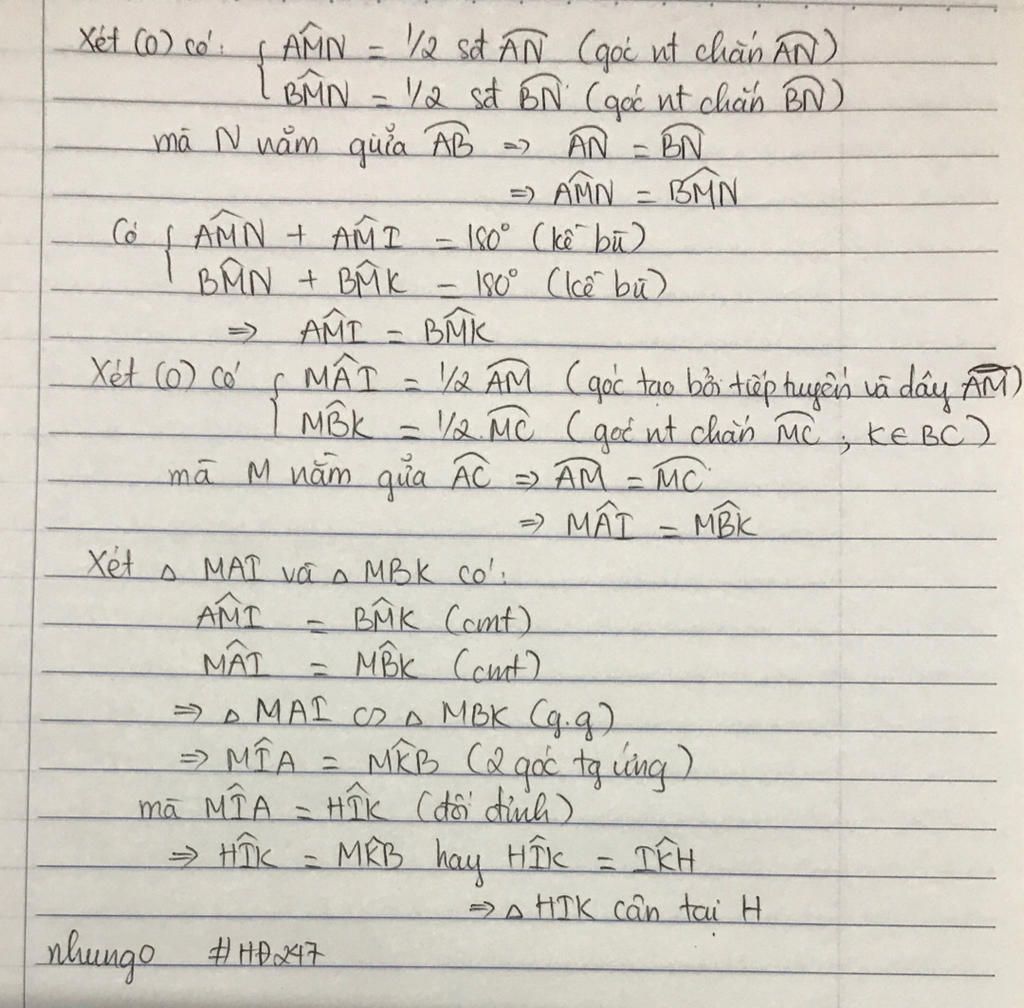 Xét (O) có: { AM̂N = 1/2 sđ A͡N (góc nt chắn A͡N)
BM̂N = 1/2 sđ B͡N (góc nt chắn B͡N)
mà N nằm giữa A͡B => A͡N = B͡N
=> AM̂N = BM̂N
Có { AM̂N + AM̂I = 180° (kề bù)
BM̂N + BM̂K = 180° (kề bù)
=> AM̂I = BM̂K
Xét (O) có { MÂI = 1/2 A͡M (góc tạo bởi tiếp tuyến và dây A͡M)
MB̂K = 1/2 M͡C (góc nt chắn M͡C ; K∈BC)
mà M nằm giữa A͡C => A͡M = M͡C
=> MÂI = MB̂K
Xét ∆ MAI và ∆ MBK có:
AM̂I = BM̂K (cmt)
MÂI = MB̂K (cmt)
=> ∆ MAI ∽ ∆ MBK (g.g)
=> MÎA = MK̂B (2 góc tg ứng)
mà MÎA = HÎK (đối đỉnh)
=> HÎK = MK̂B hay HÎK = IK̂H
=> ∆ HIK cân tại H
nhungo #HĐ247